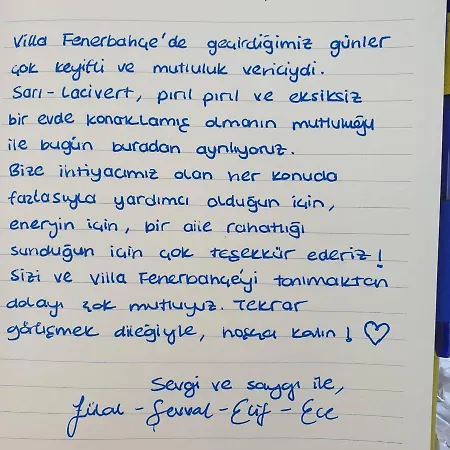 Villa Fenerbahçe'de geçirdiğimiz günler
çok keyifli ve mutluluk vericiydi.
Sarı-Lacivert, pırıl pırıl ve eksiksiz
bir evde konaklamış olmanın mutluluğu
ile bugün buradan ayrılıyoruz.
Bize ihtiyacımız olan her konuda
fazlasıyla yardımcı olduğun için,
enerjin için, bir aile rahatlığı
sunduğun için çok teşekkür ederiz!
Sizi ve Villa Fenerbahçe'yi tanımaktan
dolayı çok mutluyuz. Tekrar
görüşmek dileğiyle, hoşça kalın! ♡
Sevgi ve saygı ile,
- Şevval - Elif - Ece